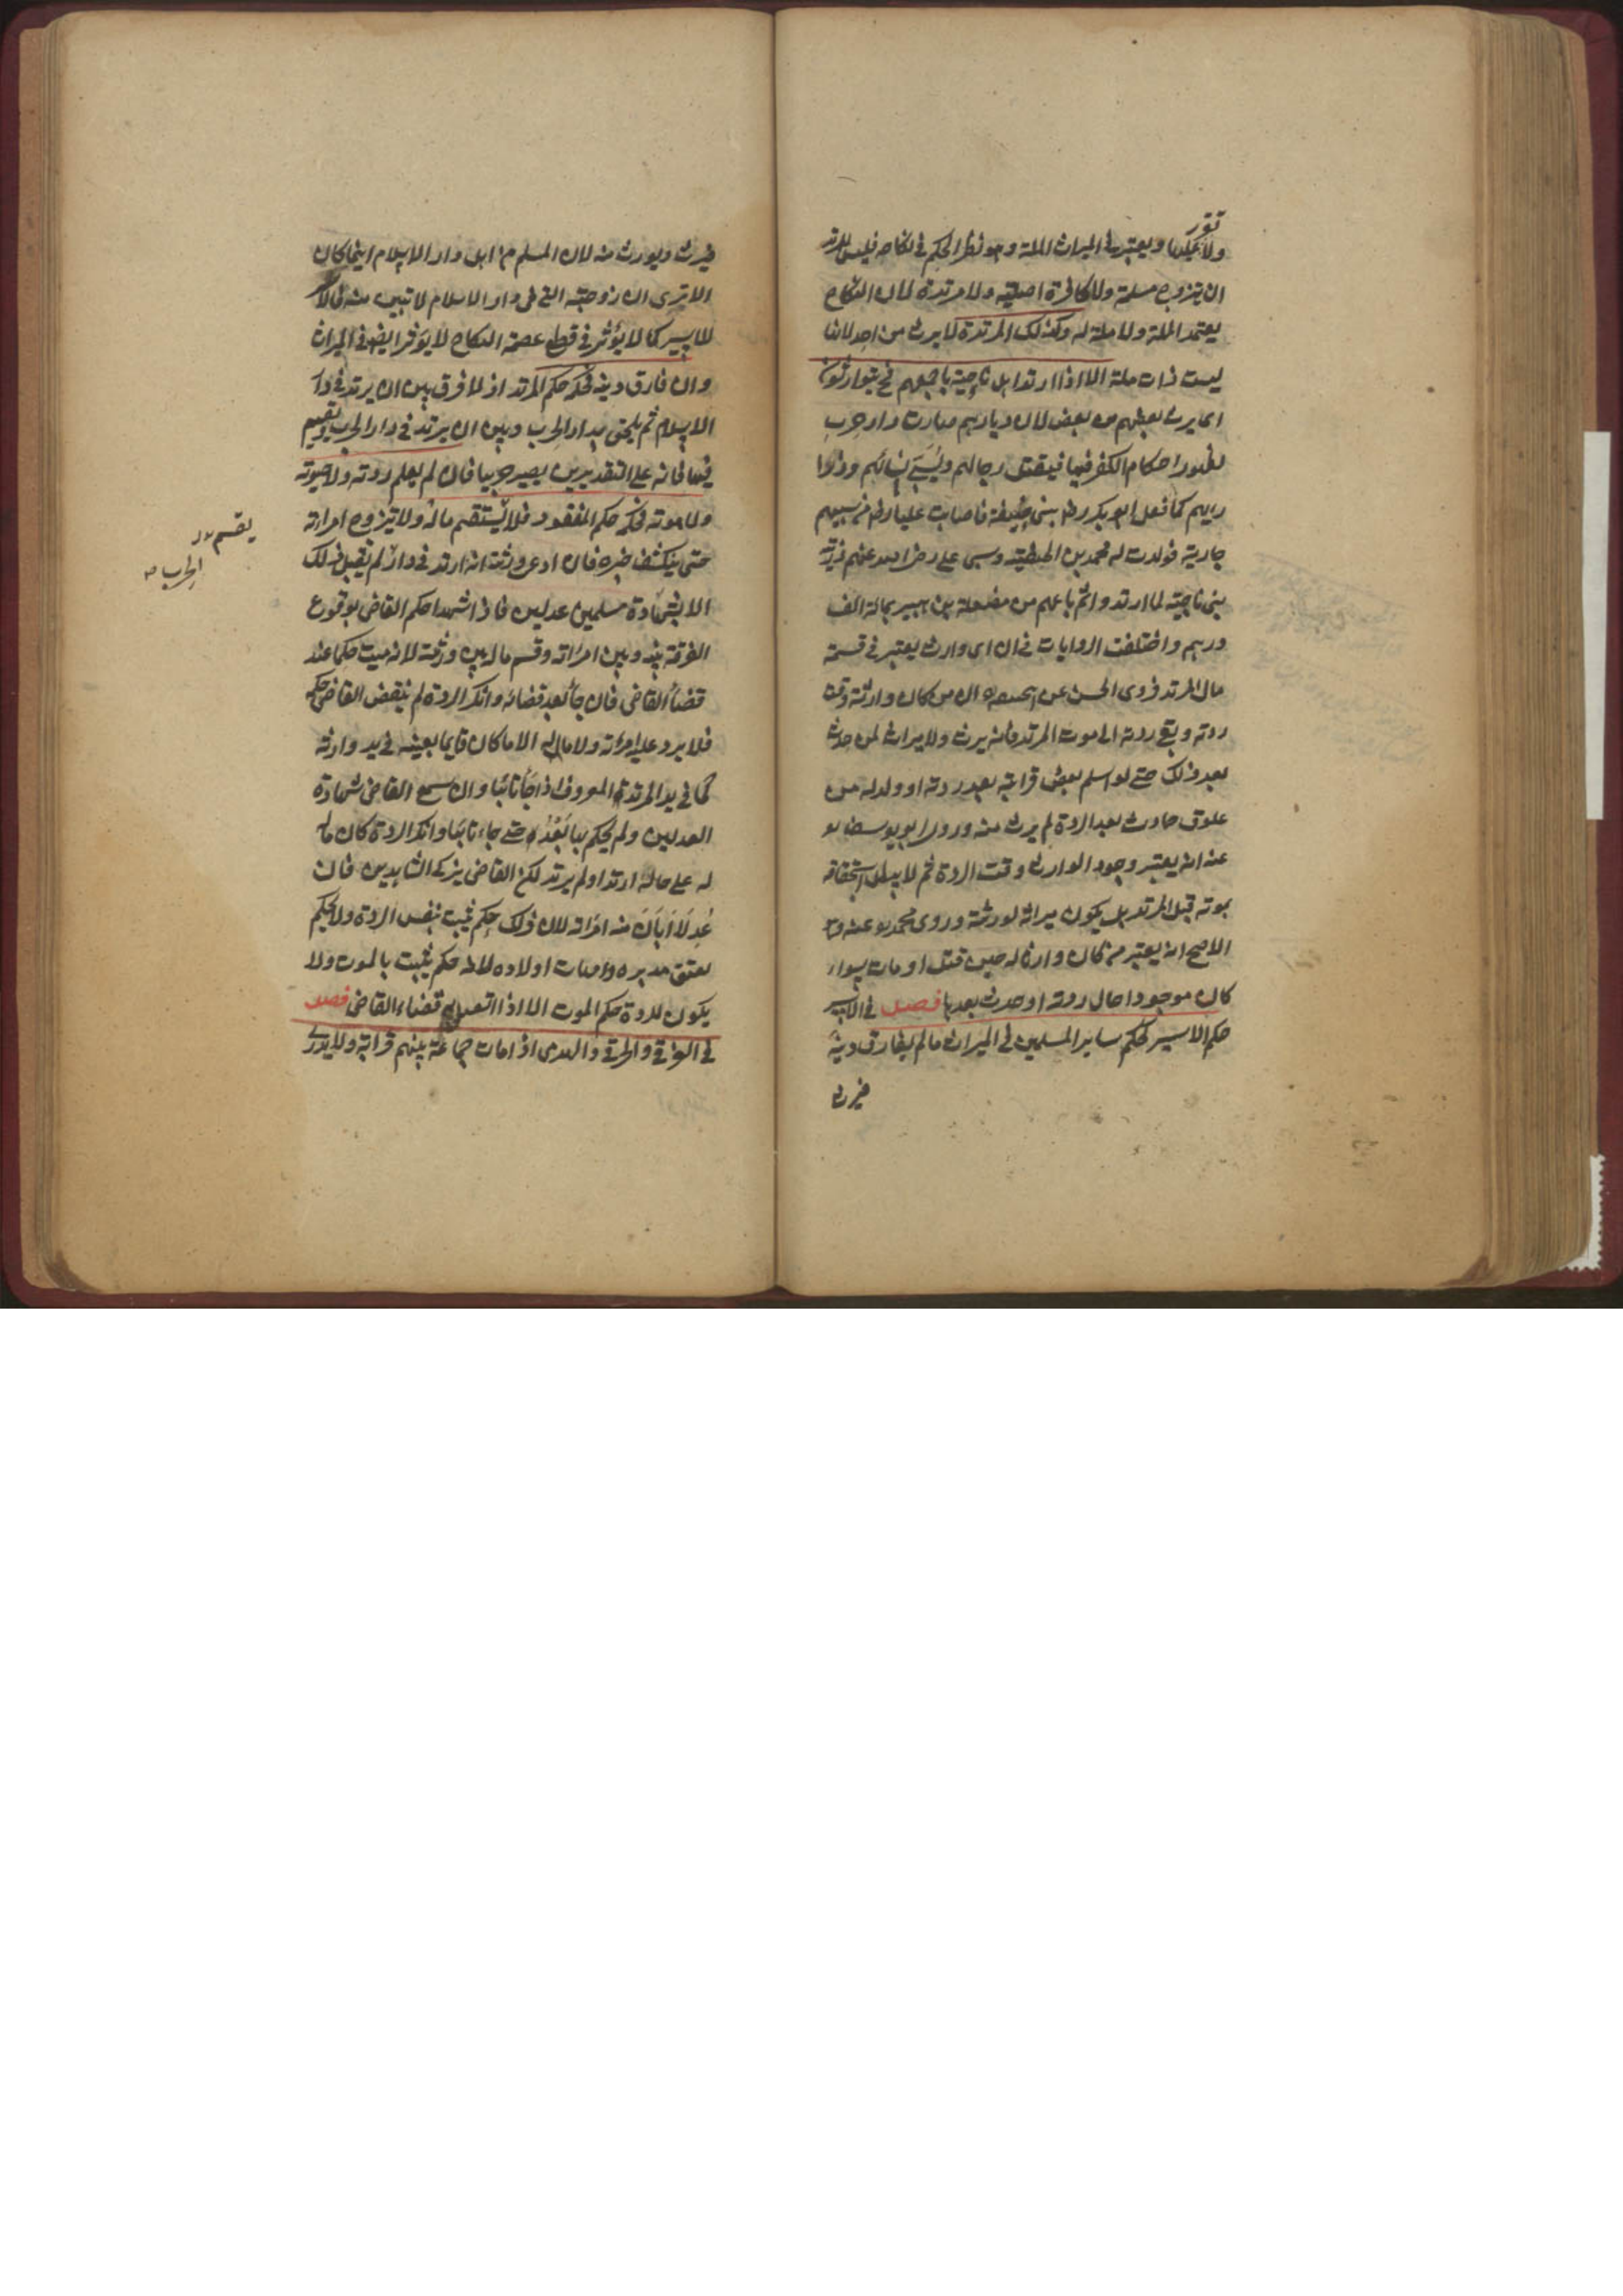 تقرر
ولا تملكها ويعتبر في الميراث الملة وهو نظير الحكم في نكاحه فليس للمرتد
ان يتزوج مسلمة ولا كافرة اصلية ولا مرتدة لان النكاح
يعتمد الملة ولا ملة له وكذلك المرتدة لا يرث من احد لانها
ليست ذات ملة الا اذا ارتد اهل ناحية باجمعهم فح يتوارثون
اى يرث بعضهم من بعض لان ديارهم صارت دار حرب
لظهور احكام الكفر فيها فيقتل رجالهم ويسبى نسائهم وذرا
ريهم كما فعل ابو بكر رضه ببنى حنيفة فاصاب عليا رضه من سبيهم
جارية فولدت له محمد بن الحنفية وسبى على رضى الله عنهم ذرية
بنى ناجية لما ارتدوا ثم باعهم من مصقلة بن هبيرة بماية الف
درهم واختلفت الروايات فى ان اى وارث يعتبر فى قسمة
مال المرتد فروى الحسن عن ابيحنيفة ان من كان وارثه وقت
ردته وبقى ردته الى موت المرتد فانه يرث ولا ميراث لمن حدث
بعد ذلك حتى لو اسلم بعض قرابته بعد ردته او ولد له من
علوق حادث بعد الردة لم يرث منه وروى ابو يوسف
عنه انه يعتبر وجود الوارث وقت الردة ثم لا يبطل استحقاقه
بموته قبل المرتد بل يكون ميراثه لورثته وروى محمد عنه وهو
الاصح انه يعتبر من كان وارثا له حين قتل او مات سواء
كان موجودا حال ردته او حدث بعدها فصل فى الاسير
حكم الاسير كحكم ساير المسلمين فى الميراث ما لم يفارق دينه
فيرث
فيرث ويورث منه لان المسلم من اهل دار الاسلام اينما كان
الا ترى ان زوجته التى فى دار الاسلام لا تبين منه
كما لا يؤثر فى قطع عصمة النكاح لا يؤثر ايضا فى الميراث
وان فارق دينه فحكمه حكم المرتد اذ لا فرق بين ان يرتد فى دار
الاسلام ثم يلحق بدار الحرب وبين ان يرتد فى دار الحرب ويقيم
فيها فانه على التقديرين يصير حربيا فان لم يعلم ردته ولا حيوته
ولا موته فحكمه حكم المفقود فلا يقسم ماله ولا تتزوج امراته
حتى ينكشف خبره فان ادعى ورثته انه ارتد فى دار لم يقبل ذلك
الا بشهادة مسلمين عدلين فاذا شهدا حكم القاضى بوقوع
الفرقة بينه وبين امراته وقسم ماله بين ورثته لانه ميت حكما عند
قضاء القاضى فان جاء بعد قضائه وانكر الردة لم ينقض القاضى حكمه
فلا يرد عليه امراته ولا ماله الا ما كان قايما بعينه فى يد وارثه
كما فى يد المرتد المعروف اذا جاء تائبا وان سمع القاضى شهادة
العدلين ولم يحكم بها بعد حتى جاء تائبا وانكر الردة كان ماله
له على حاله ارتد او لم يرتد لكن القاضى يزكى الشاهدين فان
عدلا ابان منه امراته لان ذلك حكم يثبت بنفس الردة ولا يحكم
بعتق مدبره وامهات اولاده لانه حكم يثبت بالموت ولا
يكون للردة حكم الموت الا اذا اتصل به قضاء القاضى فصل
فى الغرقى والحرقى والهدمى اذا مات جماعة بينهم قرابة ولا يدرى
يقسم
الحرب صح